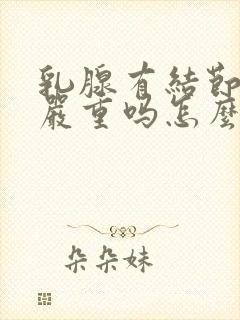 乳腺有結節
嚴重吗怎麼
朵朵妹